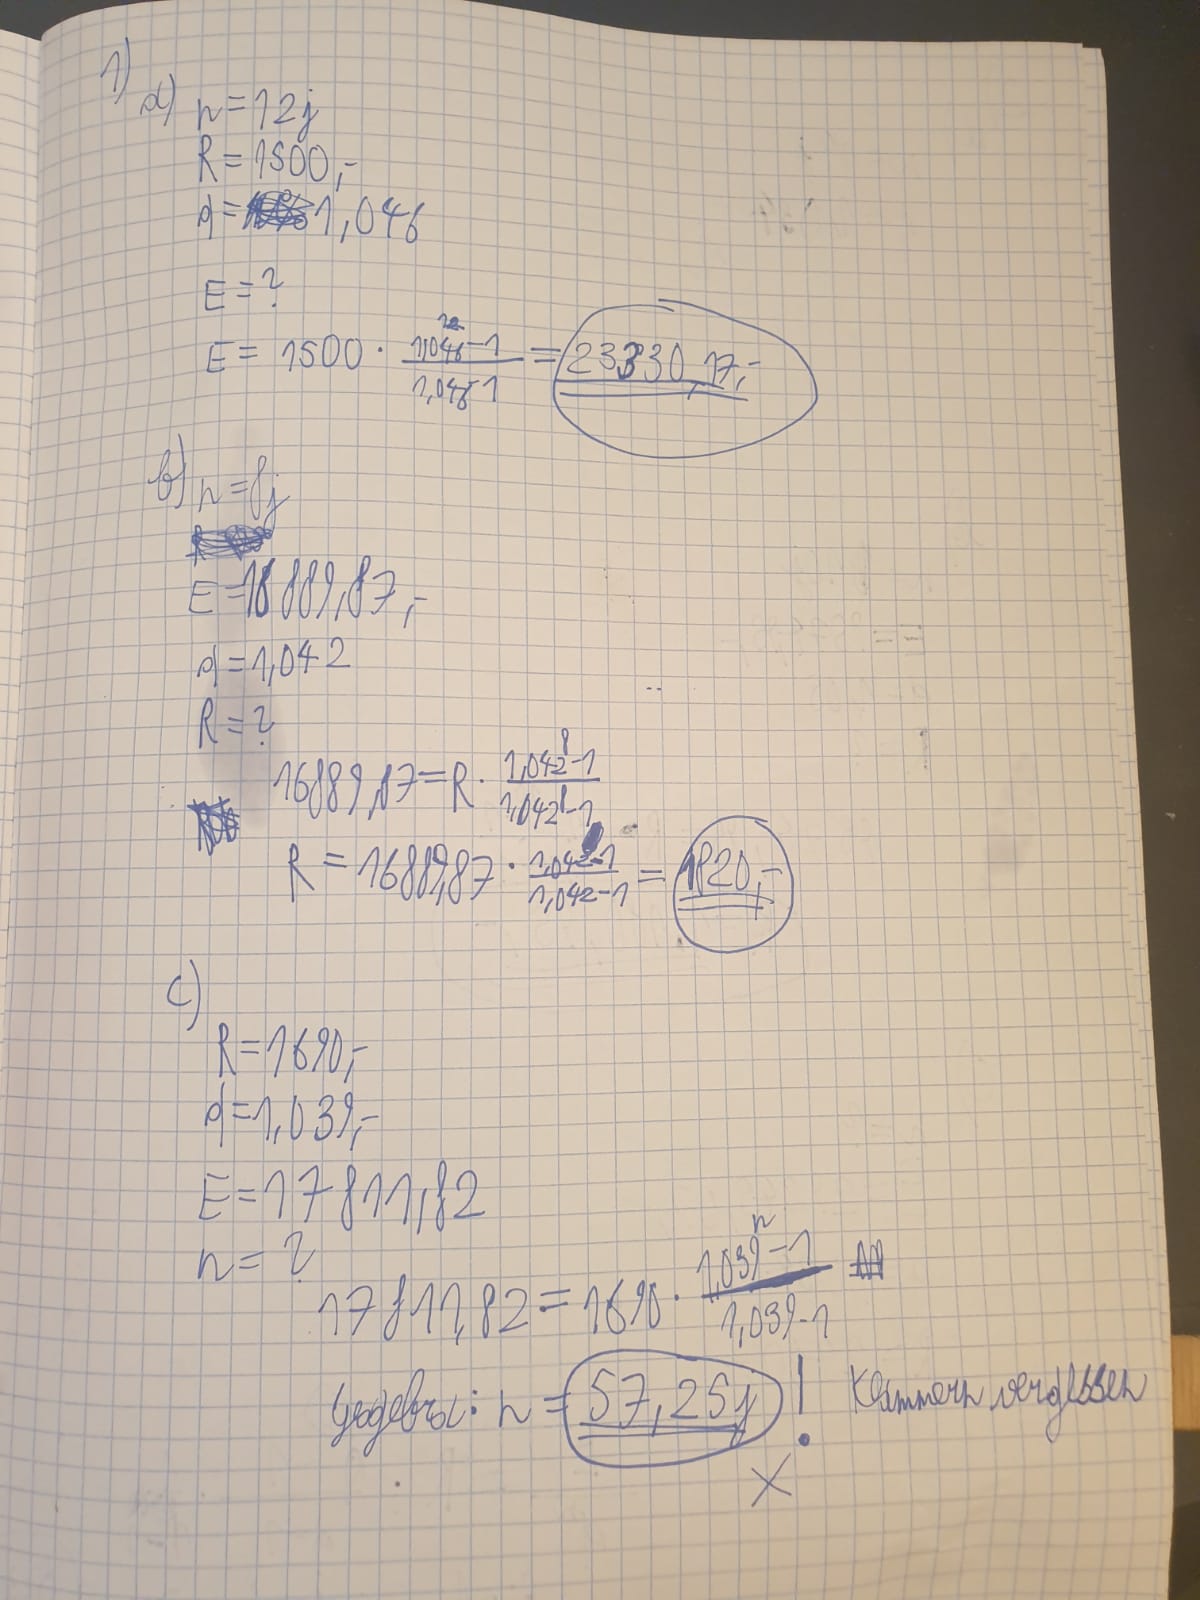 1)
a) n=12j
R=1500,-
q=1,046
E=?
E= 1500 · (1,046^12-1)/(1,046-1) = 23330,17,-
b) n=8j
E=16889,87,-
q=1,042
R=?
16889,87=R· (1,042^8-1)/(1,042-1)
R=16889,87 · (1,042-1)/(1,042-1) = 1820,-
c)
R=1690,-
q=1,039,-
E=17811,82
n=?
17811,82=1690· (1,039^n-1)/(1,039-1)
Geogebra: n=57,25j ! Klammern vergessen
X